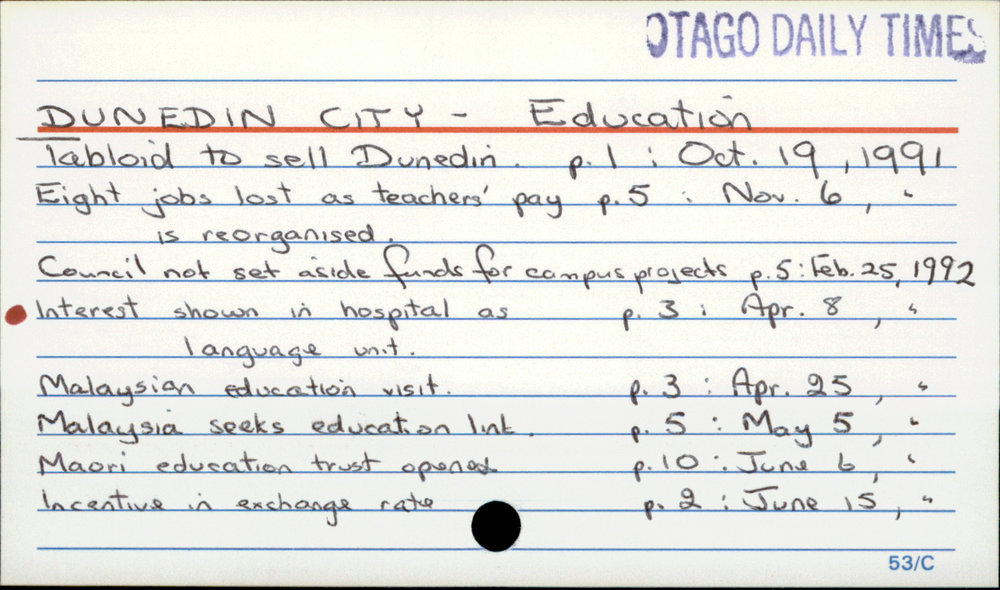 OTAGO DAILY TIMES
DUNEDIN CITY - Education
Tabloid to sell Dunedin. p. 1 : Oct. 19, 1991
Eight jobs lost as teachers' pay p. 5 : Nov. 6, "
is reorganised.
Council not set aside funds for campus projects p. 5 : Feb. 25, 1992
Interest shown in hospital as p. 3 : Apr. 8, "
language unit.
Malaysian education visit. p. 3 : Apr. 25, "
Malaysia seeks education link. p. 5 : May 5, "
Maori education trust opened p. 10 : June 6, "
Incentive in exchange rate p. 2 : June 15, "
53/C